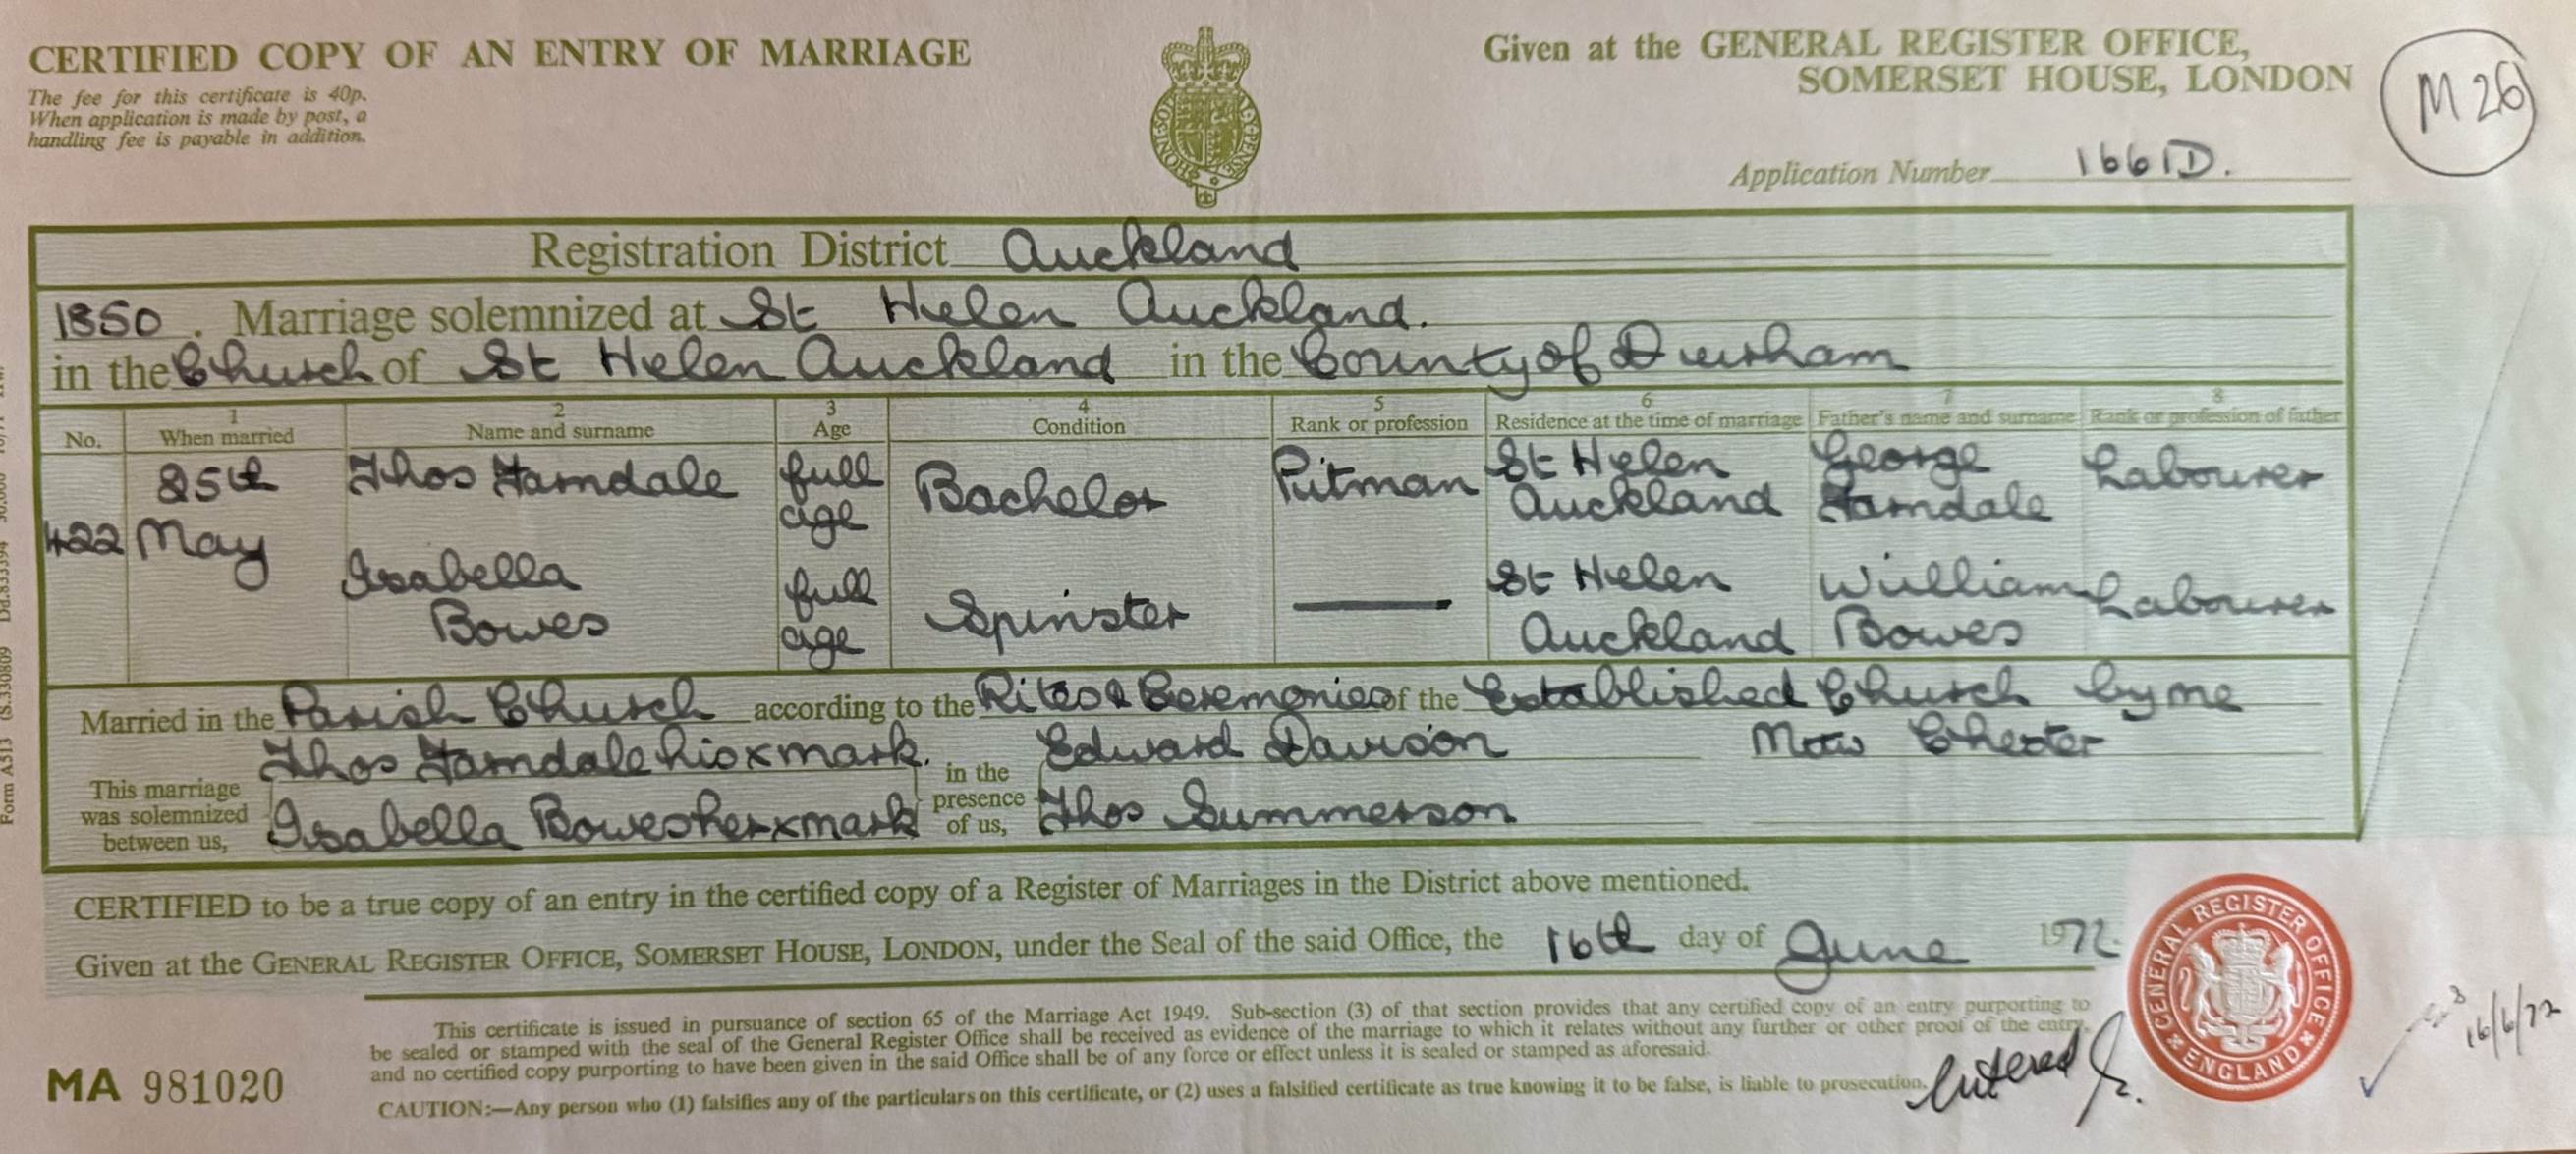 CERTIFIED COPY OF AN ENTRY OF MARRIAGE
The fee for this certificate is 40p.
When application is made by post, a
handling fee is payable in addition.
Given at the GENERAL REGISTER OFFICE,
SOMERSET HOUSE, LONDON
M 26
Application Number 1661D.
Registration District Auckland
1850. Marriage solemnized at St Helen Auckland.
in the Church of St Helen Auckland in the County of Durham
1 2 3 4 5 6 7 8
No. When married Name and surname Age Condition Rank or profession Residence at the time of marriage Father's name and surname Rank or profession of father
422 25th May Thos Farndale full age Bachelor Pitman St Helen Auckland George Farndale Labourer
Isabella Bowes full age Spinster — St Helen Auckland William Bowes Labourer
Married in the Parish Church according to the Rites & Ceremonies of the Established Church by me
This marriage was solemnized between us, Thos Farndale his x mark. Isabella Bowes her x mark
in the presence of us, Edward Davison Thos Summerson
Matw Chester
CERTIFIED to be a true copy of an entry in the certified copy of a Register of Marriages in the District above mentioned.
Given at the GENERAL REGISTER OFFICE, SOMERSET HOUSE, LONDON, under the Seal of the said Office, the 16th day of June 1972.
This certificate is issued in pursuance of section 65 of the Marriage Act 1949. Sub-section (3) of that section provides that any certified copy of an entry purporting to
be sealed or stamped with the seal of the General Register Office shall be received as evidence of the marriage to which it relates without any further or other proof of the entry,
and no certified copy purporting to have been given in the said Office shall be of any force or effect unless it is sealed or stamped as aforesaid.
CAUTION:—Any person who (1) falsifies any of the particulars on this certificate, or (2) uses a falsified certificate as true knowing it to be false, is liable to prosecution.
MA 981020
Entered
GENERAL REGISTER OFFICE
ENGLAND
16/6/72
Form A513